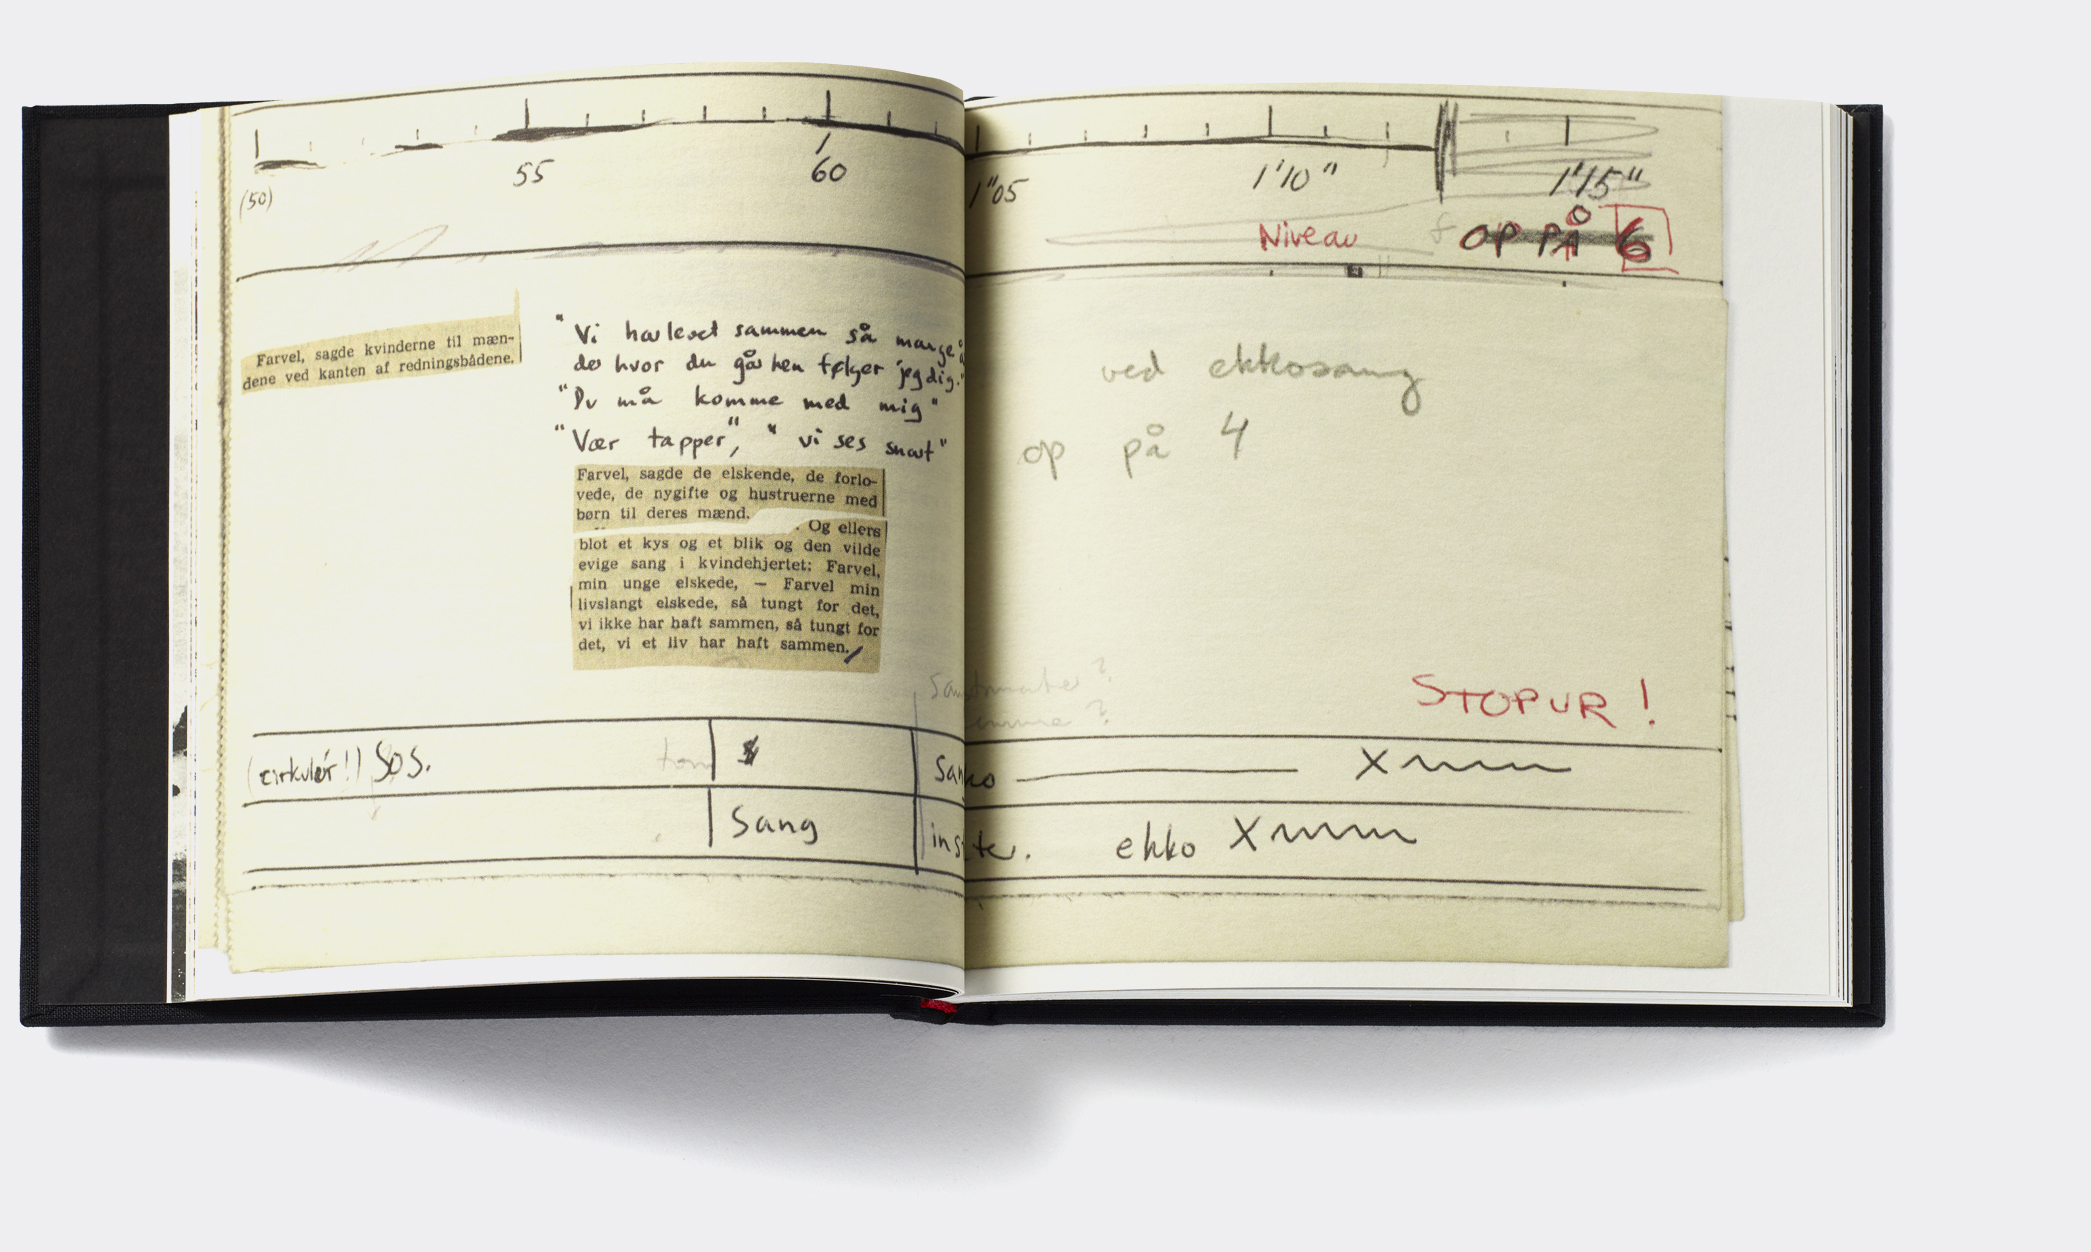 (50)
55
60
1"05
1'10"
1'15"
Niveau
OP PÅ 6
Farvel, sagde kvinderne til mæn-
dene ved kanten af redningsbådene.
"Vi har levet sammen så mange
der hvor du går hen følger jeg dig."
"Du må komme med mig"
"Vær tapper", "vi ses snart"
Farvel, sagde de elskende, de forlo-
vede, de nygifte og hustruerne med
børn til deres mænd.
. Og ellers
blot et kys og et blik og den vilde
evige sang i kvindehjertet: Farvel,
min unge elskede, — Farvel min
livslangt elskede, så tungt for det,
vi ikke har haft sammen, så tungt for
det, vi et liv har haft sammen.
ved ekkosang
op på 4
STOPUR!
(cirkulér!) SOS.
tom
Sang
ekko X